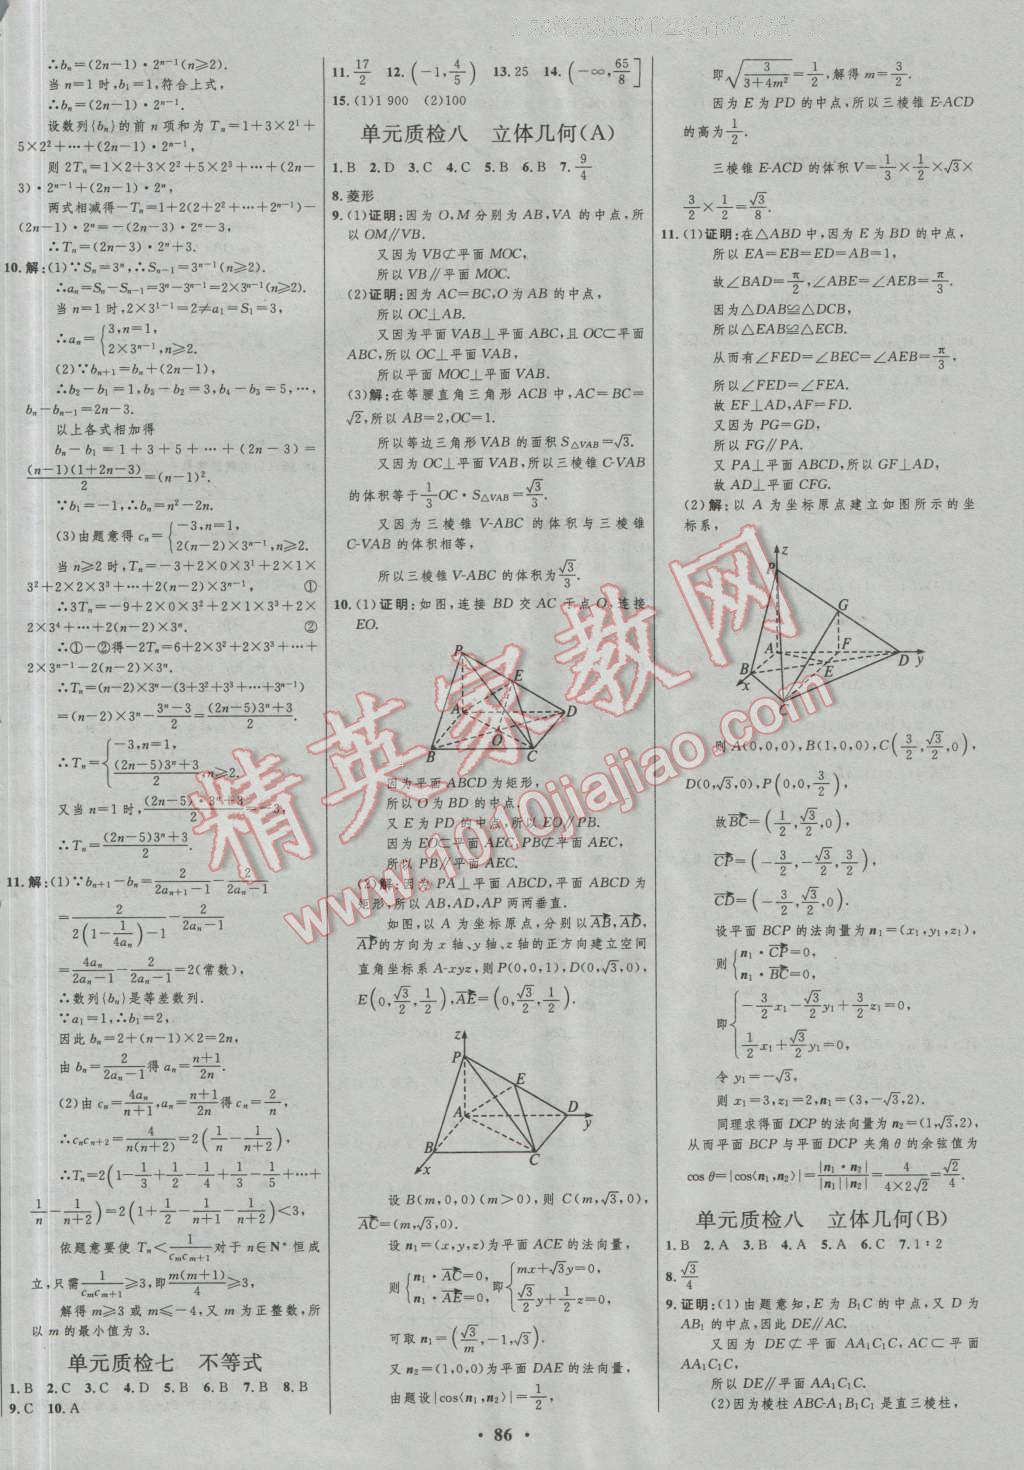 ∴bₙ=(2n-1)·2ⁿ⁻¹(n≥2).
当 n=1 时,b₁=1,符合上式,
∴bₙ=(2n-1)·2ⁿ⁻¹.
设数列{bₙ}的前 n 项和为 Tₙ=1+3×2¹+
5×2²+…+(2n-1)·2ⁿ⁻¹,
则 2Tₙ=1×2+3×2²+5×2³+…+(2n-
3)·2ⁿ⁻¹+(2n-1)·2ⁿ,
两式相减得-Tₙ=1+2(2+2²+…+2ⁿ⁻¹)-
(2n-1)·2ⁿ=-(2n-3)·2ⁿ-3,
∴Tₙ=(2n-3)·2ⁿ+3.
10.解:(1)∵Sₙ=3ⁿ,∴Sₙ₋₁=3ⁿ⁻¹(n≥2).
∴aₙ=Sₙ-Sₙ₋₁=3ⁿ-3ⁿ⁻¹=2×3ⁿ⁻¹(n≥2).
当 n=1 时,2×3¹⁻¹=2≠a₁=S₁=3,
∴aₙ={3,n=1,
2×3ⁿ⁻¹,n≥2.
(2)∵bₙ₊₁=bₙ+(2n-1),
∴b₂-b₁=1,b₃-b₂=3,b₄-b₃=5,…,
bₙ-bₙ₋₁=2n-3.
以上各式相加得
bₙ-b₁=1+3+5+…+(2n-3)=
(n-1)(1+2n-3)/2=(n-1)².
∵b₁=-1,∴bₙ=n²-2n.
(3)由题意得 cₙ={-3,n=1,
2(n-2)×3ⁿ⁻¹,n≥2.
当 n≥2 时,Tₙ=-3+2×0×3¹+2×1×
3²+2×2×3³+…+2(n-2)×3ⁿ⁻¹, ①
∴3Tₙ=-9+2×0×3²+2×1×3³+2×
2×3⁴+…+2(n-2)×3ⁿ. ②
∴①-②得-2Tₙ=6+2×3²+2×3³+…+
2×3ⁿ⁻¹-2(n-2)×3ⁿ.
∴Tₙ=(n-2)×3ⁿ-(3+3²+3³+…+3ⁿ⁻¹)
=(n-2)×3ⁿ-(3ⁿ-3)/2=((2n-5)3ⁿ+3)/2.
∴Tₙ={-3,n=1,
((2n-5)3ⁿ+3)/2,n≥2.
又当 n=1 时,((2n-5)·3ⁿ+3)/2=-3,
∴Tₙ=((2n-5)3ⁿ+3)/2.
11.解:(1)∵bₙ₊₁-bₙ=2/(2aₙ₊₁-1)-2/(2aₙ-1)
=2/(2(1-1/(4aₙ))-1)-2/(2aₙ-1)
=4aₙ/(2aₙ-1)-2/(2aₙ-1)=2(常数),
∴数列{bₙ}是等差数列.
∵a₁=1,∴b₁=2,
因此 bₙ=2+(n-1)×2=2n,
由 bₙ=2/(2aₙ-1)得 aₙ=(n+1)/2n.
(2)由 cₙ=4aₙ/(n+1),aₙ=(n+1)/2n得 cₙ=2/n,
∴cₙcₙ₊₂=4/(n(n+2))=2(1/n-1/(n+2)),
∴Tₙ=2(1-1/3+1/2-1/4+1/3-1/5+…+
1/n-1/(n+2))=2(1+1/2-1/(n+1)-1/(n+2))<3,
依题意要使 Tₙ<1/(cₘcₘ₊₁)对于 n∈N*恒成
立,只需1/(cₘcₘ₊₁)≥3,即m(m+1)/4≥3,
解得 m≥3 或 m≤-4,又 m 为正整数,所
以 m 的最小值为 3.
单元质检七 不等式
1.B 2.C 3.C 4.D 5.B 6.B 7.B 8.B
9.C 10.A
11.17/2 12.(-1,4/5) 13.25 14.(-∞,65/8]
15.(1)1 900 (2)100
单元质检八 立体几何(A)
1.B 2.D 3.C 4.C 5.B 6.B 7.9/4
8.菱形
9.(1)证明:因为 O,M 分别为 AB,VA 的中点,所
以 OM∥VB.
又因为 VB⊄平面 MOC,
所以 VB∥平面 MOC.
(2)证明:因为 AC=BC,O 为 AB 的中点,
所以 OC⊥AB.
又因为平面 VAB⊥平面 ABC,且 OC⊂平面
ABC,所以 OC⊥平面 VAB,
所以平面 MOC⊥平面 VAB.
(3)解:在等腰直角三角形 ACB 中,AC=BC=
√2,所以 AB=2,OC=1.
所以等边三角形 VAB 的面积 S△VAB=√3.
又因为 OC⊥平面 VAB,所以三棱锥 C-VAB
的体积等于1/3OC·S△VAB=√3/3.
又因为三棱锥 V-ABC 的体积与三棱锥
C-VAB 的体积相等,
所以三棱锥 V-ABC 的体积为√3/3.
10.(1)证明:如图,连接 BD 交 AC 于点 O,连接
EO.
P
E
A
D
O
B
C
因为平面 ABCD 为矩形,
所以 O 为 BD 的中点.
又 E 为 PD 的中点,所以 EO∥PB.
因为 EO⊂平面 AEC,PB⊄平面 AEC,
所以 PB∥平面 AEC.
(2)解:因为 PA⊥平面 ABCD,平面 ABCD 为
矩形,所以 AB,AD,AP 两两垂直.
如图,以 A 为坐标原点,分别以AB,AD,
AP的方向为 x 轴、y 轴、z 轴的正方向建立空间
直角坐标系 A-xyz,则 P(0,0,1),D(0,√3,0),
E(0,√3/2,1/2),AE=(0,√3/2,1/2).
z
P
E
A
D
y
B
C
x
设 B(m,0,0)(m>0),则 C(m,√3,0),
AC=(m,√3,0).
设 n₁=(x,y,z)为平面 ACE 的法向量,
则{n₁·AC=0,即{mx+√3y=0,
n₁·AE=0, √3/2y+1/2z=0,
可取 n₁=(√3/m,-1,√3).
又 n₂=(1,0,0)为平面 DAE 的法向量,
由题设|cos⟨n₁,n₂⟩|=1/2,
即√(3/(3+4m²))=1/2,解得 m=3/2.
因为 E 为 PD 的中点,所以三棱锥 E-ACD
的高为1/2.
三棱锥 E-ACD 的体积 V=1/3×1/2×√3×
3/2×1/2=√3/8.
11.(1)证明:在△ABD 中,因为 E 为 BD 的中点,
所以 EA=EB=ED=AB=1,
故∠BAD=π/2,∠ABE=∠AEB=π/3.
因为△DAB≌△DCB,
所以△EAB≌△ECB.
从而有∠FED=∠BEC=∠AEB=π/3,
所以∠FED=∠FEA.
故 EF⊥AD,AF=FD.
又因为 PG=GD,
所以 FG∥PA.
又 PA⊥平面 ABCD,所以 GF⊥AD,
故 AD⊥平面 CFG.
(2)解:以 A 为坐标原点建立如图所示的坐
标系,
z
P
G
A
F
B
E
D
y
x
C
则 A(0,0,0),B(1,0,0),C(3/2,√3/2,0),
D(0,√3,0),P(0,0,3/2),
故BC=(1/2,√3/2,0),
CP=(-3/2,-√3/2,3/2),
CD=(-3/2,√3/2,0).
设平面 BCP 的法向量为 n₁=(x₁,y₁,z₁),
则{n₁·CP=0,
n₁·BC=0,
即{-3/2x₁-√3/2y₁+3/2z₁=0,
1/2x₁+√3/2y₁=0,
令 y₁=-√3,
则 x₁=3,z₁=2,n₁=(3,-√3,2).
同理求得面 DCP 的法向量为 n₂=(1,√3,2),
从而平面 BCP 与平面 DCP 夹角 θ 的余弦值为
cos θ=|cos⟨n₁,n₂⟩|=|n₁·n₂|/(|n₁||n₂|)=4/(4×2√2)=√2/4.
单元质检八 立体几何(B)
1.B 2.A 3.B 4.A 5.A 6.C 7.1∶2
8.√3/4
9.证明:(1)由题意知,E 为 B₁C 的中点,又 D 为
AB₁ 的中点,因此 DE∥AC.
又因为 DE⊄平面 AA₁C₁C,AC⊂平面
AA₁C₁C,
所以 DE∥平面 AA₁C₁C.
(2)因为棱柱 ABC-A₁B₁C₁ 是直三棱柱,
· 86 ·
精英家教网
www.1010jiajiao.com